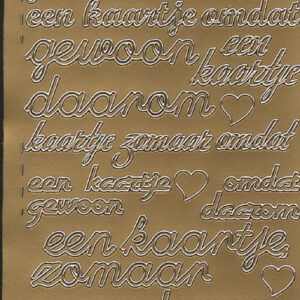 een kaartje omdat
gewoon een
kaartje
daarom
kaartje zomaar omdat
een kaartje omdat
gewoon daarom
een kaartje
zomaar